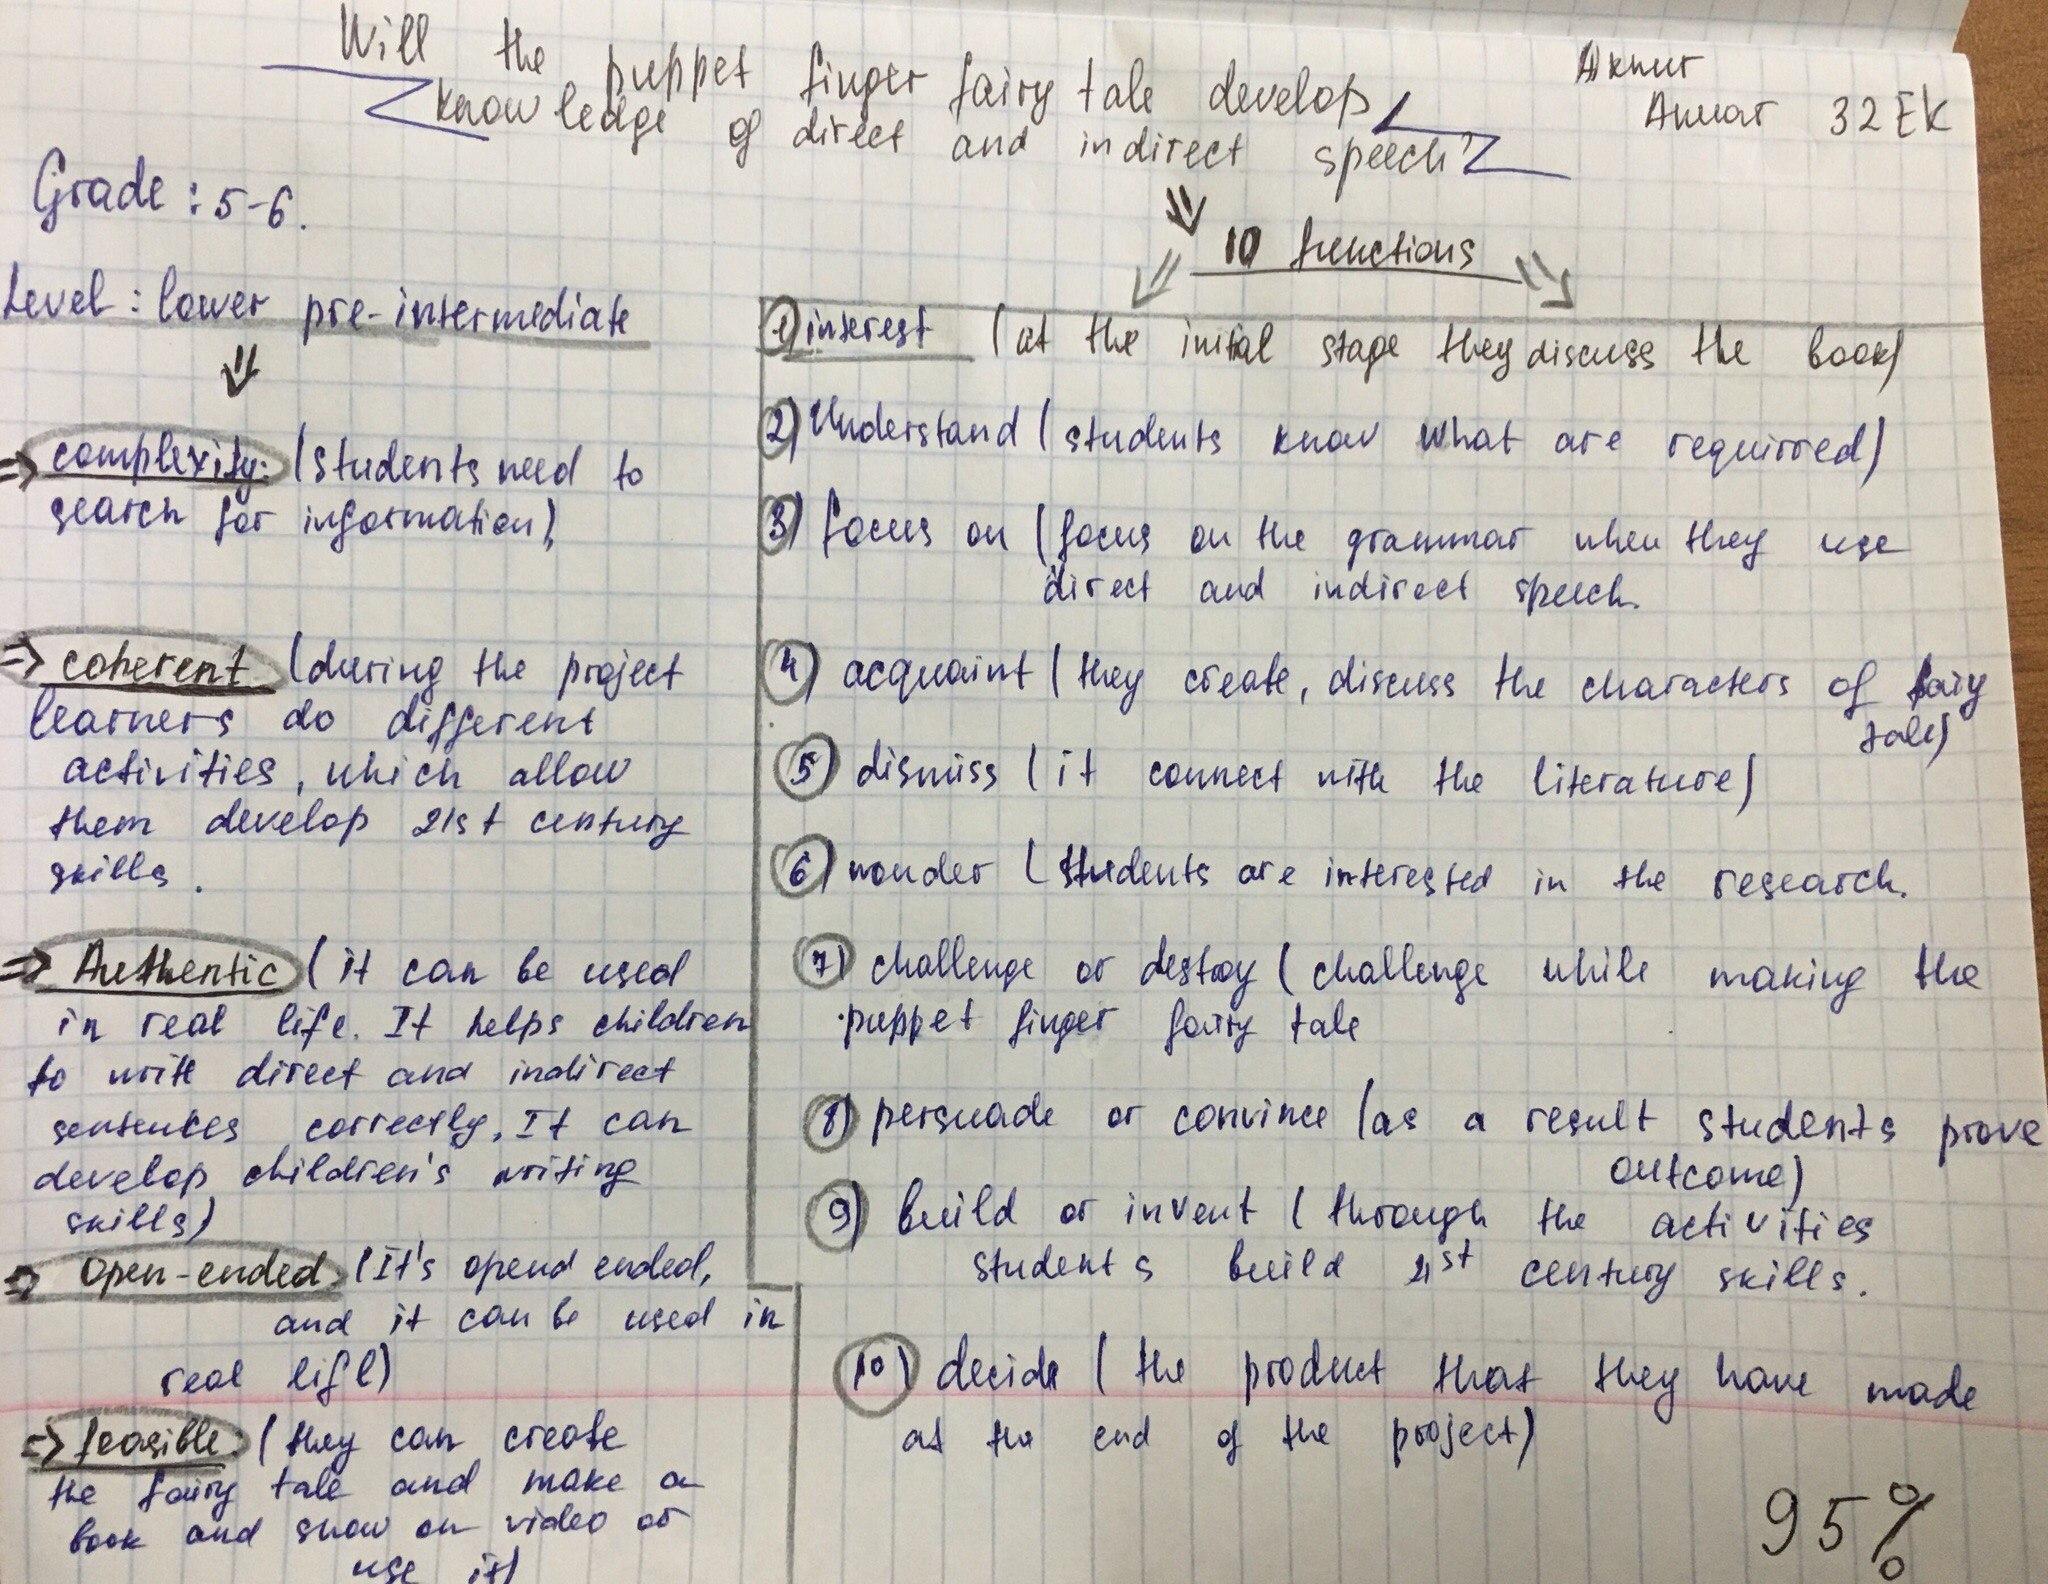 Will the puppet finger fairy tale develop
knowledge of direct and indirect speech?
Aknur
Anuar 32 EK
Grade: 5-6.
Level: lower pre-intermediate
=> complexity: (students need to
search for information)
=> coherent (during the project
learners do different
activities, which allow
them develop 21st century
skills.
=> Authentic (it can be used
in real life. It helps children
to write direct and indirect
sentences correctly, It can
develop children's writing
skills)
=> open-ended (It's opend ended,
and it can be used in
real life)
=> feasible: (they can create
the fairy tale and make a
book and show on video or
use it)
10 functions
1) interest (at the initial stage they discuss the book)
2) Understand (students know what are requirred)
3) focus on (focus on the grammar when they use
direct and indirect speech.
4) acquaint (they create, discuss the characters of fairy
tale)
5) dismiss (it connect with the literature)
6) wonder (students are interested in the research.
7) challenge or destroy (challenge while making the
puppet finger fairy tale
8) persuade or convince (as a result students prove
outcome)
9) build or invent (through the activities
students build 21st century skills.
10) decide (the product that they have made
at the end of the project)
95%